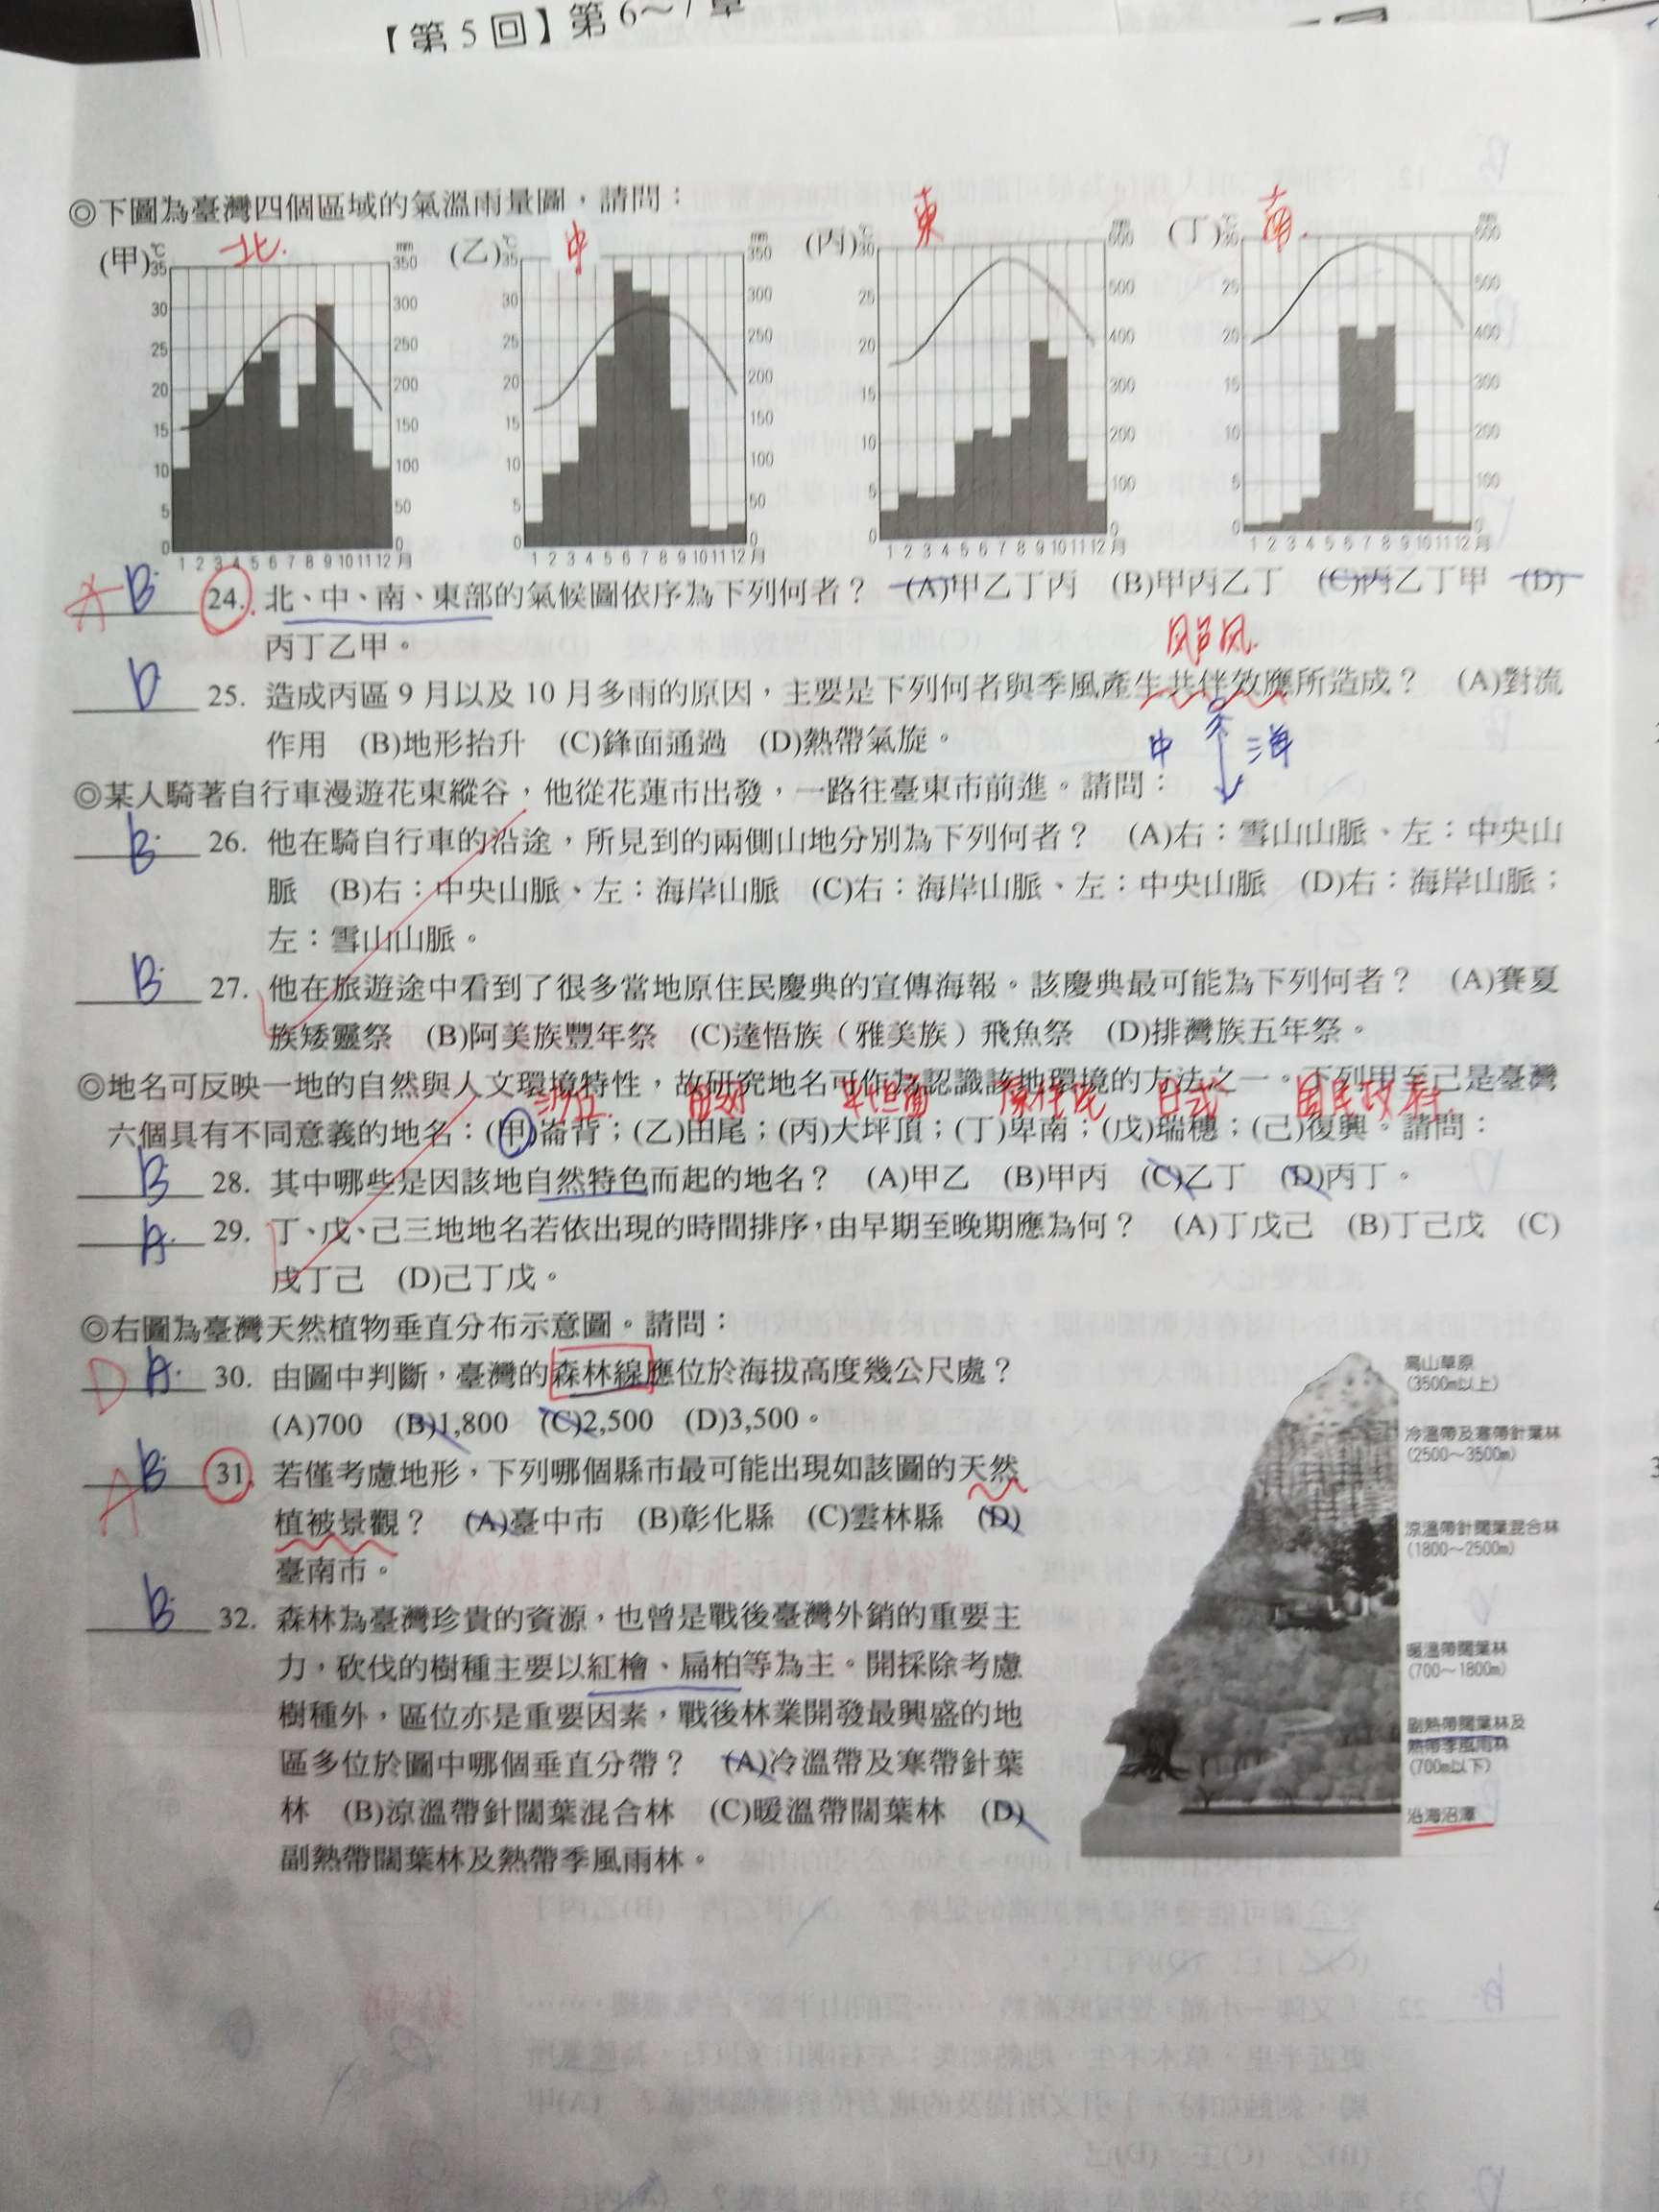 【第5回】第6～7章
◎下圖為臺灣四個區域的氣溫雨量圖，請問：
(甲) 北. (乙) 中 (丙) 東 (丁) 南.
℃ mm ℃ mm ℃ mm ℃ mm
35 350 35 350 30 600 30 600
30 300 30 300 25 500 25 500
25 250 25 250 20 400 20 400
20 200 20 200 15 300 15 300
15 150 15 150 10 200 10 200
10 100 10 100 5 100 5 100
5 50 5 50 0 0 0 0
0 0 0 0
1 2 3 4 5 6 7 8 9 10 11 12 月 1 2 3 4 5 6 7 8 9 10 11 12 月 1 2 3 4 5 6 7 8 9 10 11 12 月 1 2 3 4 5 6 7 8 9 10 11 12 月
A B. 24. 北、中、南、東部的氣候圖依序為下列何者？ (A)甲乙丁丙 (B)甲丙乙丁 (C)丙乙丁甲 (D)
丙丁乙甲。
颱風.
D 25. 造成丙區9月以及10月多雨的原因，主要是下列何者與季風產生共伴效應所造成？ (A)對流
作用 (B)地形抬升 (C)鋒面通過 (D)熱帶氣旋。
中 海
◎某人騎著自行車漫遊花東縱谷，他從花蓮市出發，一路往臺東市前進。請問：
B. 26. 他在騎自行車的沿途，所見到的兩側山地分別為下列何者？ (A)右：雪山山脈、左：中央山
脈 (B)右：中央山脈、左：海岸山脈 (C)右：海岸山脈、左：中央山脈 (D)右：海岸山脈；
左：雪山山脈。
B. 27. 他在旅遊途中看到了很多當地原住民慶典的宣傳海報。該慶典最可能為下列何者？ (A)賽夏
族矮靈祭 (B)阿美族豐年祭 (C)達悟族（雅美族）飛魚祭 (D)排灣族五年祭。
◎地名可反映一地的自然與人文環境特性，故研究地名可作為認識該地環境的方法之一。下列甲至己是臺灣
原住民 日式 國民政府.
六個具有不同意義的地名：(甲)崙背；(乙)田尾；(丙)大坪頂；(丁)卑南；(戊)瑞穗；(己)復興。請問：
B 28. 其中哪些是因該地自然特色而起的地名？ (A)甲乙 (B)甲丙 (C)乙丁 (D)丙丁。
A. 29. 丁、戊、己三地地名若依出現的時間排序，由早期至晚期應為何？ (A)丁戊己 (B)丁己戊 (C)
戊丁己 (D)己丁戊。
◎右圖為臺灣天然植物垂直分布示意圖。請問：
D A. 30. 由圖中判斷，臺灣的森林線應位於海拔高度幾公尺處？
(A)700 (B)1,800 (C)2,500 (D)3,500。
A B. 31. 若僅考慮地形，下列哪個縣市最可能出現如該圖的天然
植被景觀？ (A)臺中市 (B)彰化縣 (C)雲林縣 (D)
臺南市。
B. 32. 森林為臺灣珍貴的資源，也曾是戰後臺灣外銷的重要主
力，砍伐的樹種主要以紅檜、扁柏等為主。開採除考慮
樹種外，區位亦是重要因素，戰後林業開發最興盛的地
區多位於圖中哪個垂直分帶？ (A)冷溫帶及寒帶針葉
林 (B)涼溫帶針闊葉混合林 (C)暖溫帶闊葉林 (D)
副熱帶闊葉林及熱帶季風雨林。
高山草原
(3500m以上)
冷溫帶及寒帶針葉林
(2500～3500m)
涼溫帶針闊葉混合林
(1800～2500m)
暖溫帶闊葉林
(700～1800m)
副熱帶闊葉林及
熱帶季風雨林
(700m以下)
沿海沼澤